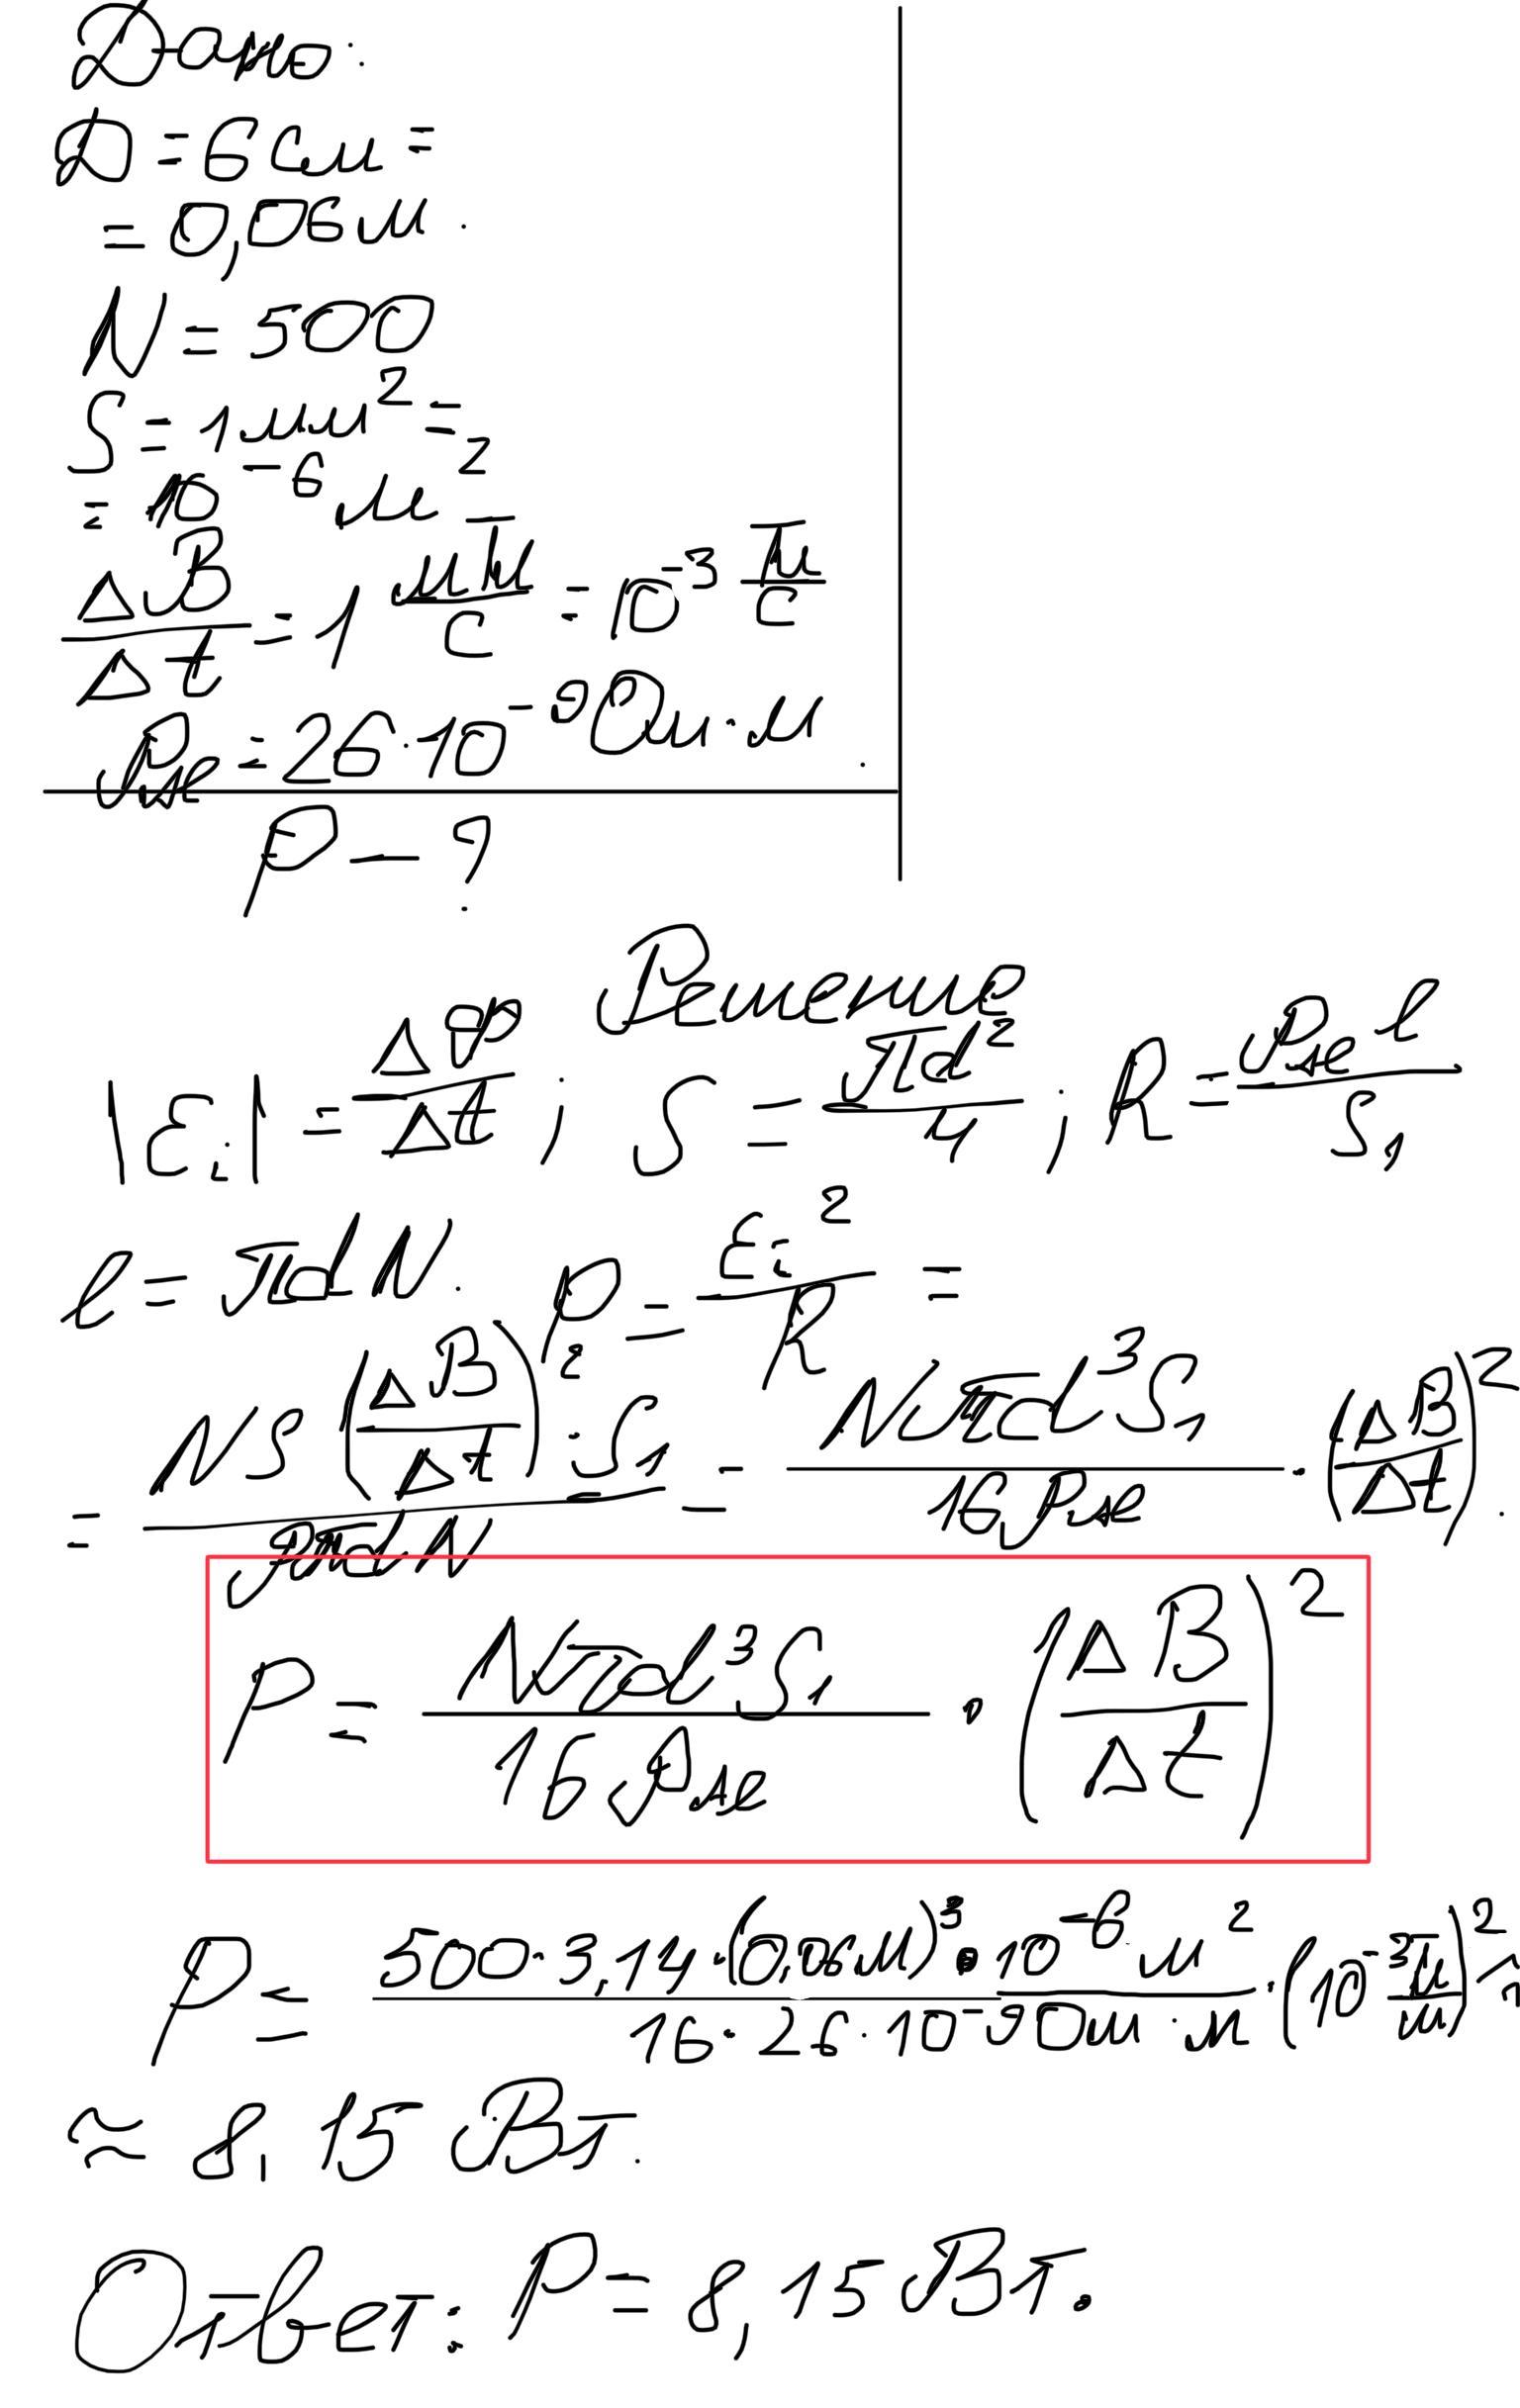 Дано:
D = 6 см =
= 0,06 м.
N = 500
S = 1 мм² =
= 10⁻⁶ м²
ΔB/Δt = 1 мТл/с = 10⁻³ Тл/с
ρме = 26·10⁻⁸ Ом·м.
P — ?
Решение
|εi| = ΔФ/Δt ; S = πd²/4 ; R = ρме l/S₁
l = πdN. P = εi²/R =
= NS(ΔB/Δt)² · S₁/ρπdN = Nπd³S₁/16ρме · (ΔB/Δt)².
P = Nπd³S₁/16ρме · (ΔB/Δt)²
P = 500·3,14·(0,06м)³·10⁻⁶м²/16·26·10⁻⁸Ом·м · (10⁻³ Тл/м)² ≈
≈ 8,15 Вт.
Ответ: P = 8,15 Вт.